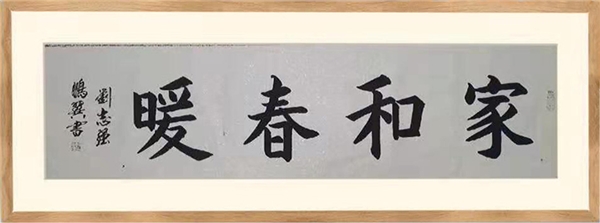 家和春暖
劉志强
書